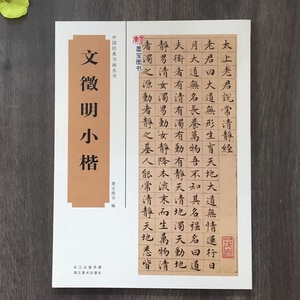 中国经典书画丛书
文徵明小楷
墨宝图书 编
长江出版传媒
湖北美术出版社
墨宝图书
太上老君說常清静經
老君曰大道無形生育天地大道無情運行日
月大道無名長養萬物吾不知其名强名曰道
夫道者有清有濁有動有静天清地濁天動地
静男清女濁男動女静降本流末而生萬物清
者濁之源動者静之基人能常清静天地悉皆